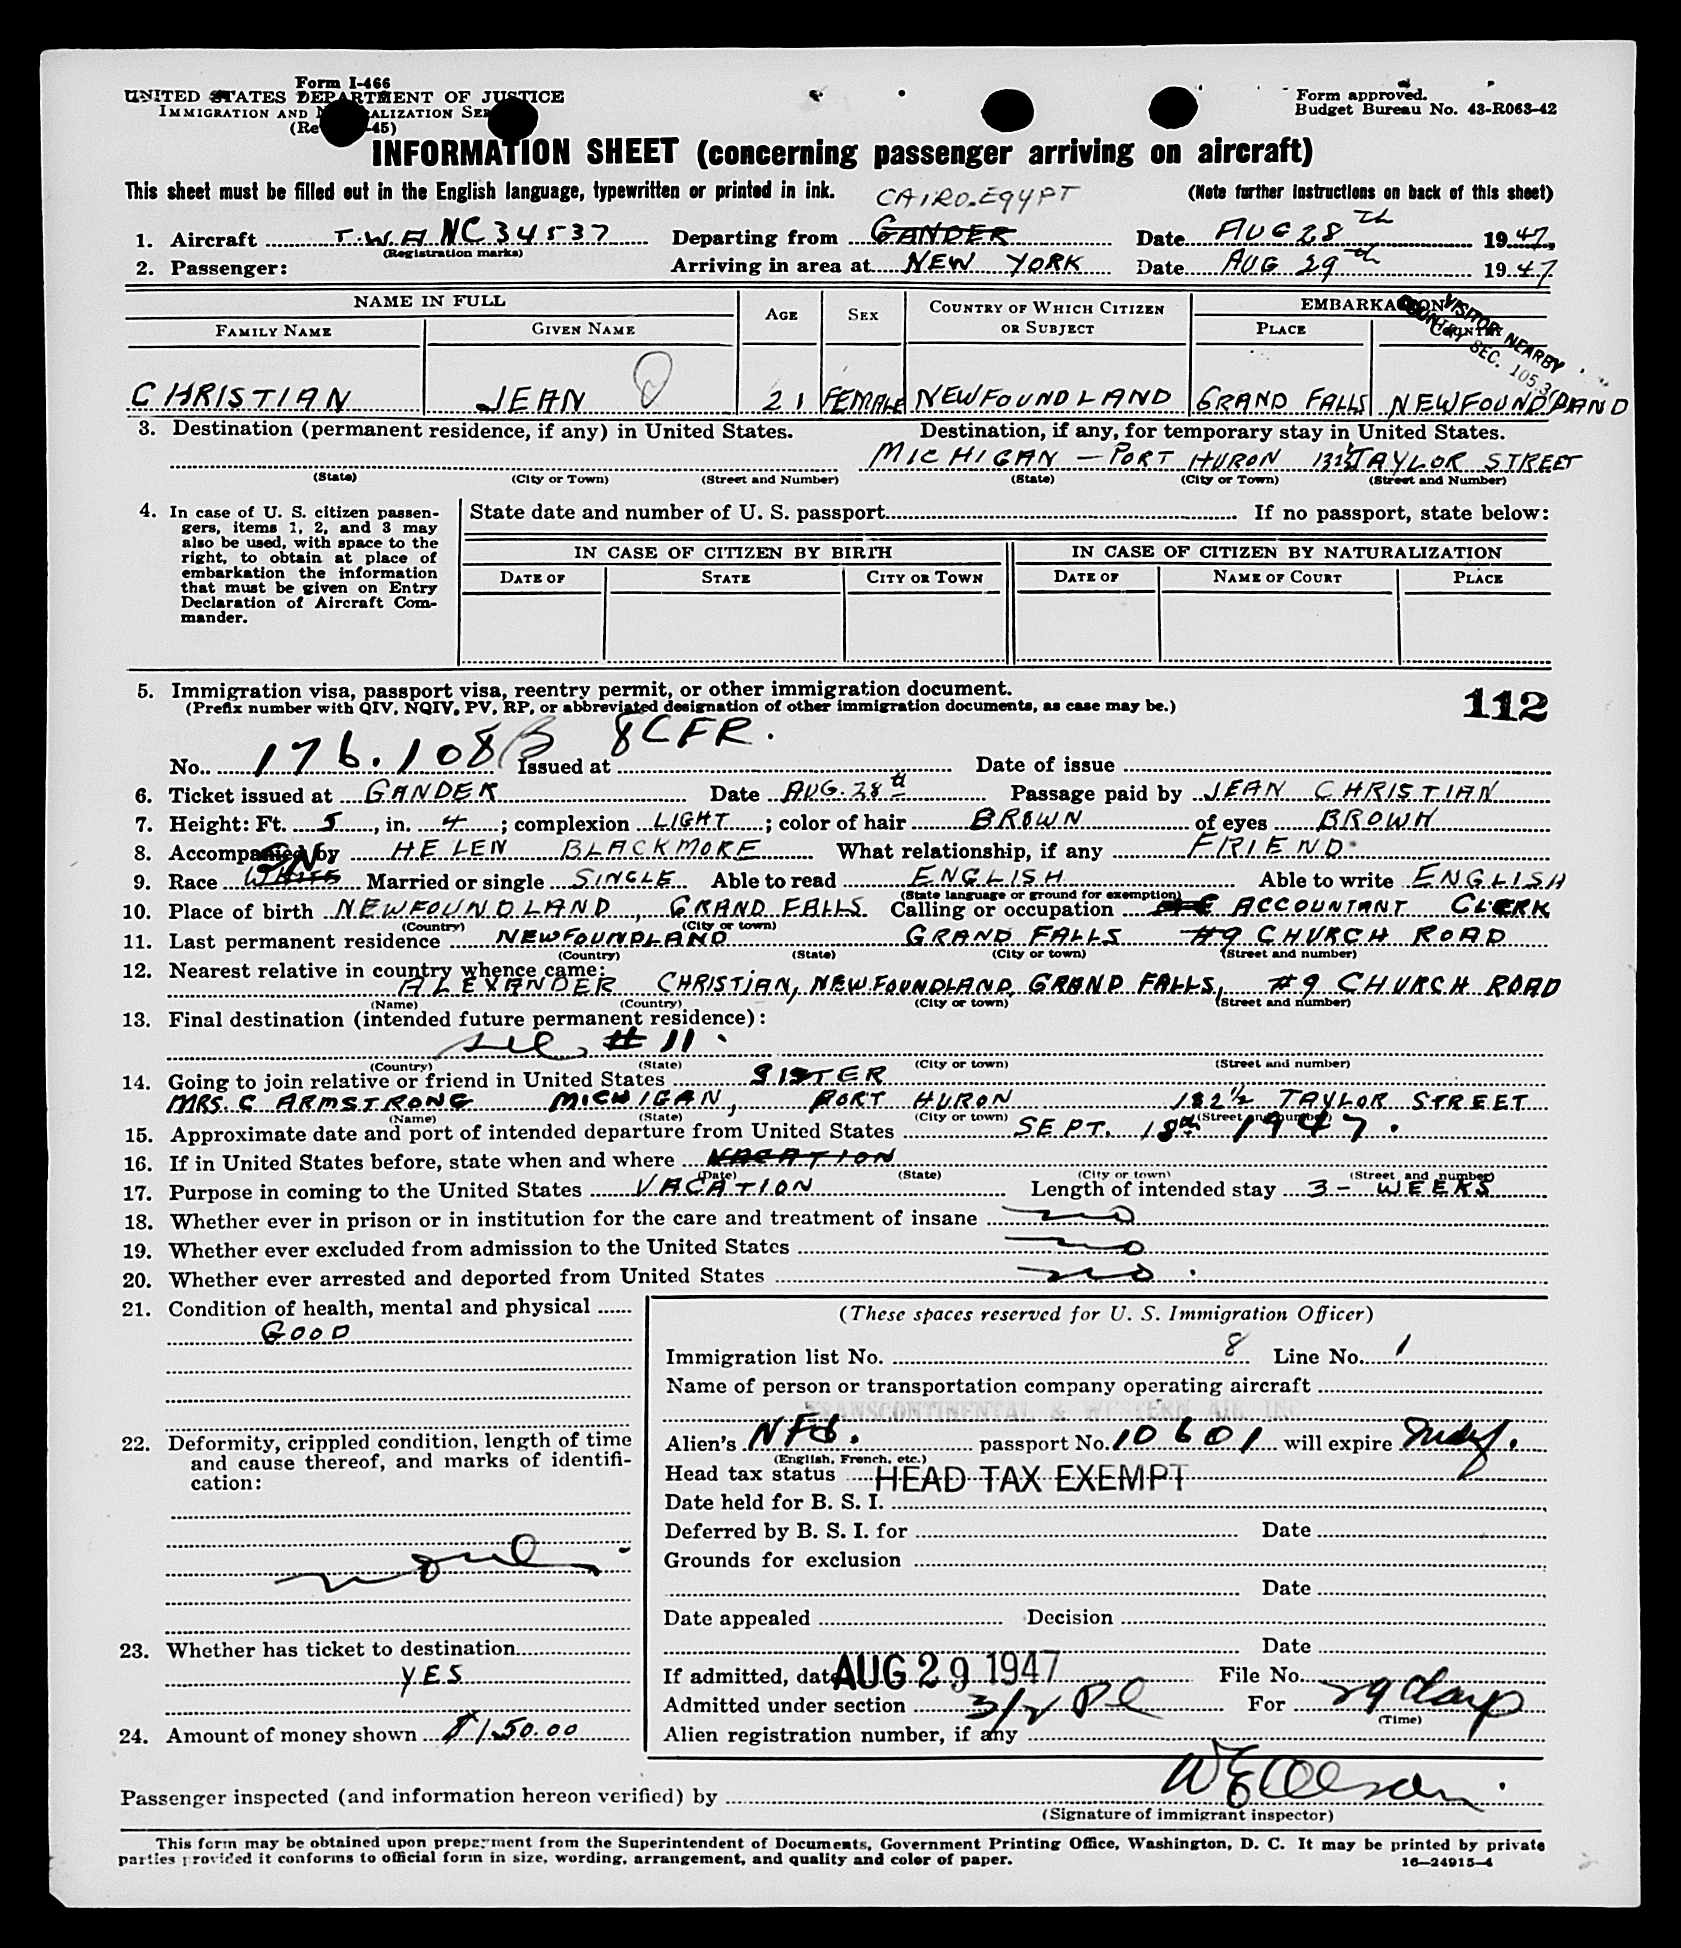 Form I-466
UNITED STATES DEPARTMENT OF JUSTICE
IMMIGRATION AND NATURALIZATION SER
(Re -45)
Form approved.
Budget Bureau No. 43-R063-42
INFORMATION SHEET (concerning passenger arriving on aircraft)
This sheet must be filled out in the English language, typewritten or printed in ink. CAIRO. EGYPT (Note further instructions on back of this sheet)
1. Aircraft T.W.A. NC 34537 Departing from GANDER Date AUG 28 th 1947,
(Registration marks)
2. Passenger: Arriving in area at NEW YORK Date AUG 29 th 1947
NAME IN FULL AGE SEX COUNTRY OF WHICH CITIZEN OR SUBJECT EMBARKATION
FAMILY NAME GIVEN NAME PLACE COUNTRY
VISITOR NEARBY
COUNTRY SEC. 105.3(
CHRISTIAN JEAN 21 FEMALE NEWFOUNDLAND GRAND FALLS NEWFOUNDLAND
3. Destination (permanent residence, if any) in United States. Destination, if any, for temporary stay in United States.
MICHIGAN — PORT HURON TAYLOR STREET
(State) (City or Town) (Street and Number) (State) (City or Town) (Street and Number)
4. In case of U. S. citizen passengers, items 1, 2, and 3 may also be used, with space to the right, to obtain at place of embarkation the information that must be given on Entry Declaration of Aircraft Commander.
State date and number of U. S. passport If no passport, state below:
IN CASE OF CITIZEN BY BIRTH IN CASE OF CITIZEN BY NATURALIZATION
DATE OF STATE CITY OR TOWN DATE OF NAME OF COURT PLACE
5. Immigration visa, passport visa, reentry permit, or other immigration document.
(Prefix number with QIV, NQIV, PV, RP, or abbreviated designation of other immigration documents, as case may be.)
112
No. 176.108 B 8 CFR. Issued at Date of issue
6. Ticket issued at GANDER Date AUG. 28 th Passage paid by JEAN CHRISTIAN
7. Height: Ft. 5, in. 4; complexion LIGHT; color of hair BROWN of eyes BROWN
8. Accompanied by HELEN BLACKMORE What relationship, if any FRIEND
9. Race WHITE Married or single SINGLE Able to read ENGLISH Able to write ENGLISH
(State language or ground for exemption)
10. Place of birth NEWFOUNDLAND, GRAND FALLS Calling or occupation ACCOUNTANT CLERK
(Country) (City or town)
11. Last permanent residence NEWFOUNDLAND GRAND FALLS #9 CHURCH ROAD
(Country) (State) (City or town) (Street and number)
12. Nearest relative in country whence came:
ALEXANDER CHRISTIAN, NEWFOUNDLAND GRAND FALLS, #9 CHURCH ROAD
(Name) (Country) (City or town) (Street and number)
13. Final destination (intended future permanent residence):
see #11.
(Country) (State) (City or town) (Street and number)
14. Going to join relative or friend in United States SISTER
MRS. C ARMSTRONG MICHIGAN, PORT HURON 132½ TAYLOR STREET
(Name) (State) (City or town) (Street and number)
15. Approximate date and port of intended departure from United States SEPT. 18th 1947.
16. If in United States before, state when and where VACATION
(Date) (State) (City or town) (Street and number)
17. Purpose in coming to the United States VACATION Length of intended stay 3 - WEEKS
18. Whether ever in prison or in institution for the care and treatment of insane no
19. Whether ever excluded from admission to the United States no
20. Whether ever arrested and deported from United States no.
21. Condition of health, mental and physical
GOOD
22. Deformity, crippled condition, length of time and cause thereof, and marks of identification:
none
23. Whether has ticket to destination
YES
24. Amount of money shown $150.00
(These spaces reserved for U. S. Immigration Officer)
Immigration list No. 8 Line No. 1
Name of person or transportation company operating aircraft
TRANSCONTINENTAL & WESTERN AIR, INC.
Alien's NFd. passport No. 10601 will expire Indef.
(English, French, etc.)
Head tax status HEAD TAX EXEMPT
Date held for B. S. I.
Deferred by B. S. I. for Date
Grounds for exclusion
Date
Date appealed Decision
Date
If admitted, date AUG 29 1947 File No.
Admitted under section 3/2 For 29 days
(Time)
Alien registration number, if any
Passenger inspected (and information hereon verified) by W E Olson.
(Signature of immigrant inspector)
This form may be obtained upon prepayment from the Superintendent of Documents, Government Printing Office, Washington, D. C. It may be printed by private
parties provided it conforms to official form in size, wording, arrangement, and quality and color of paper.
16—24915-4